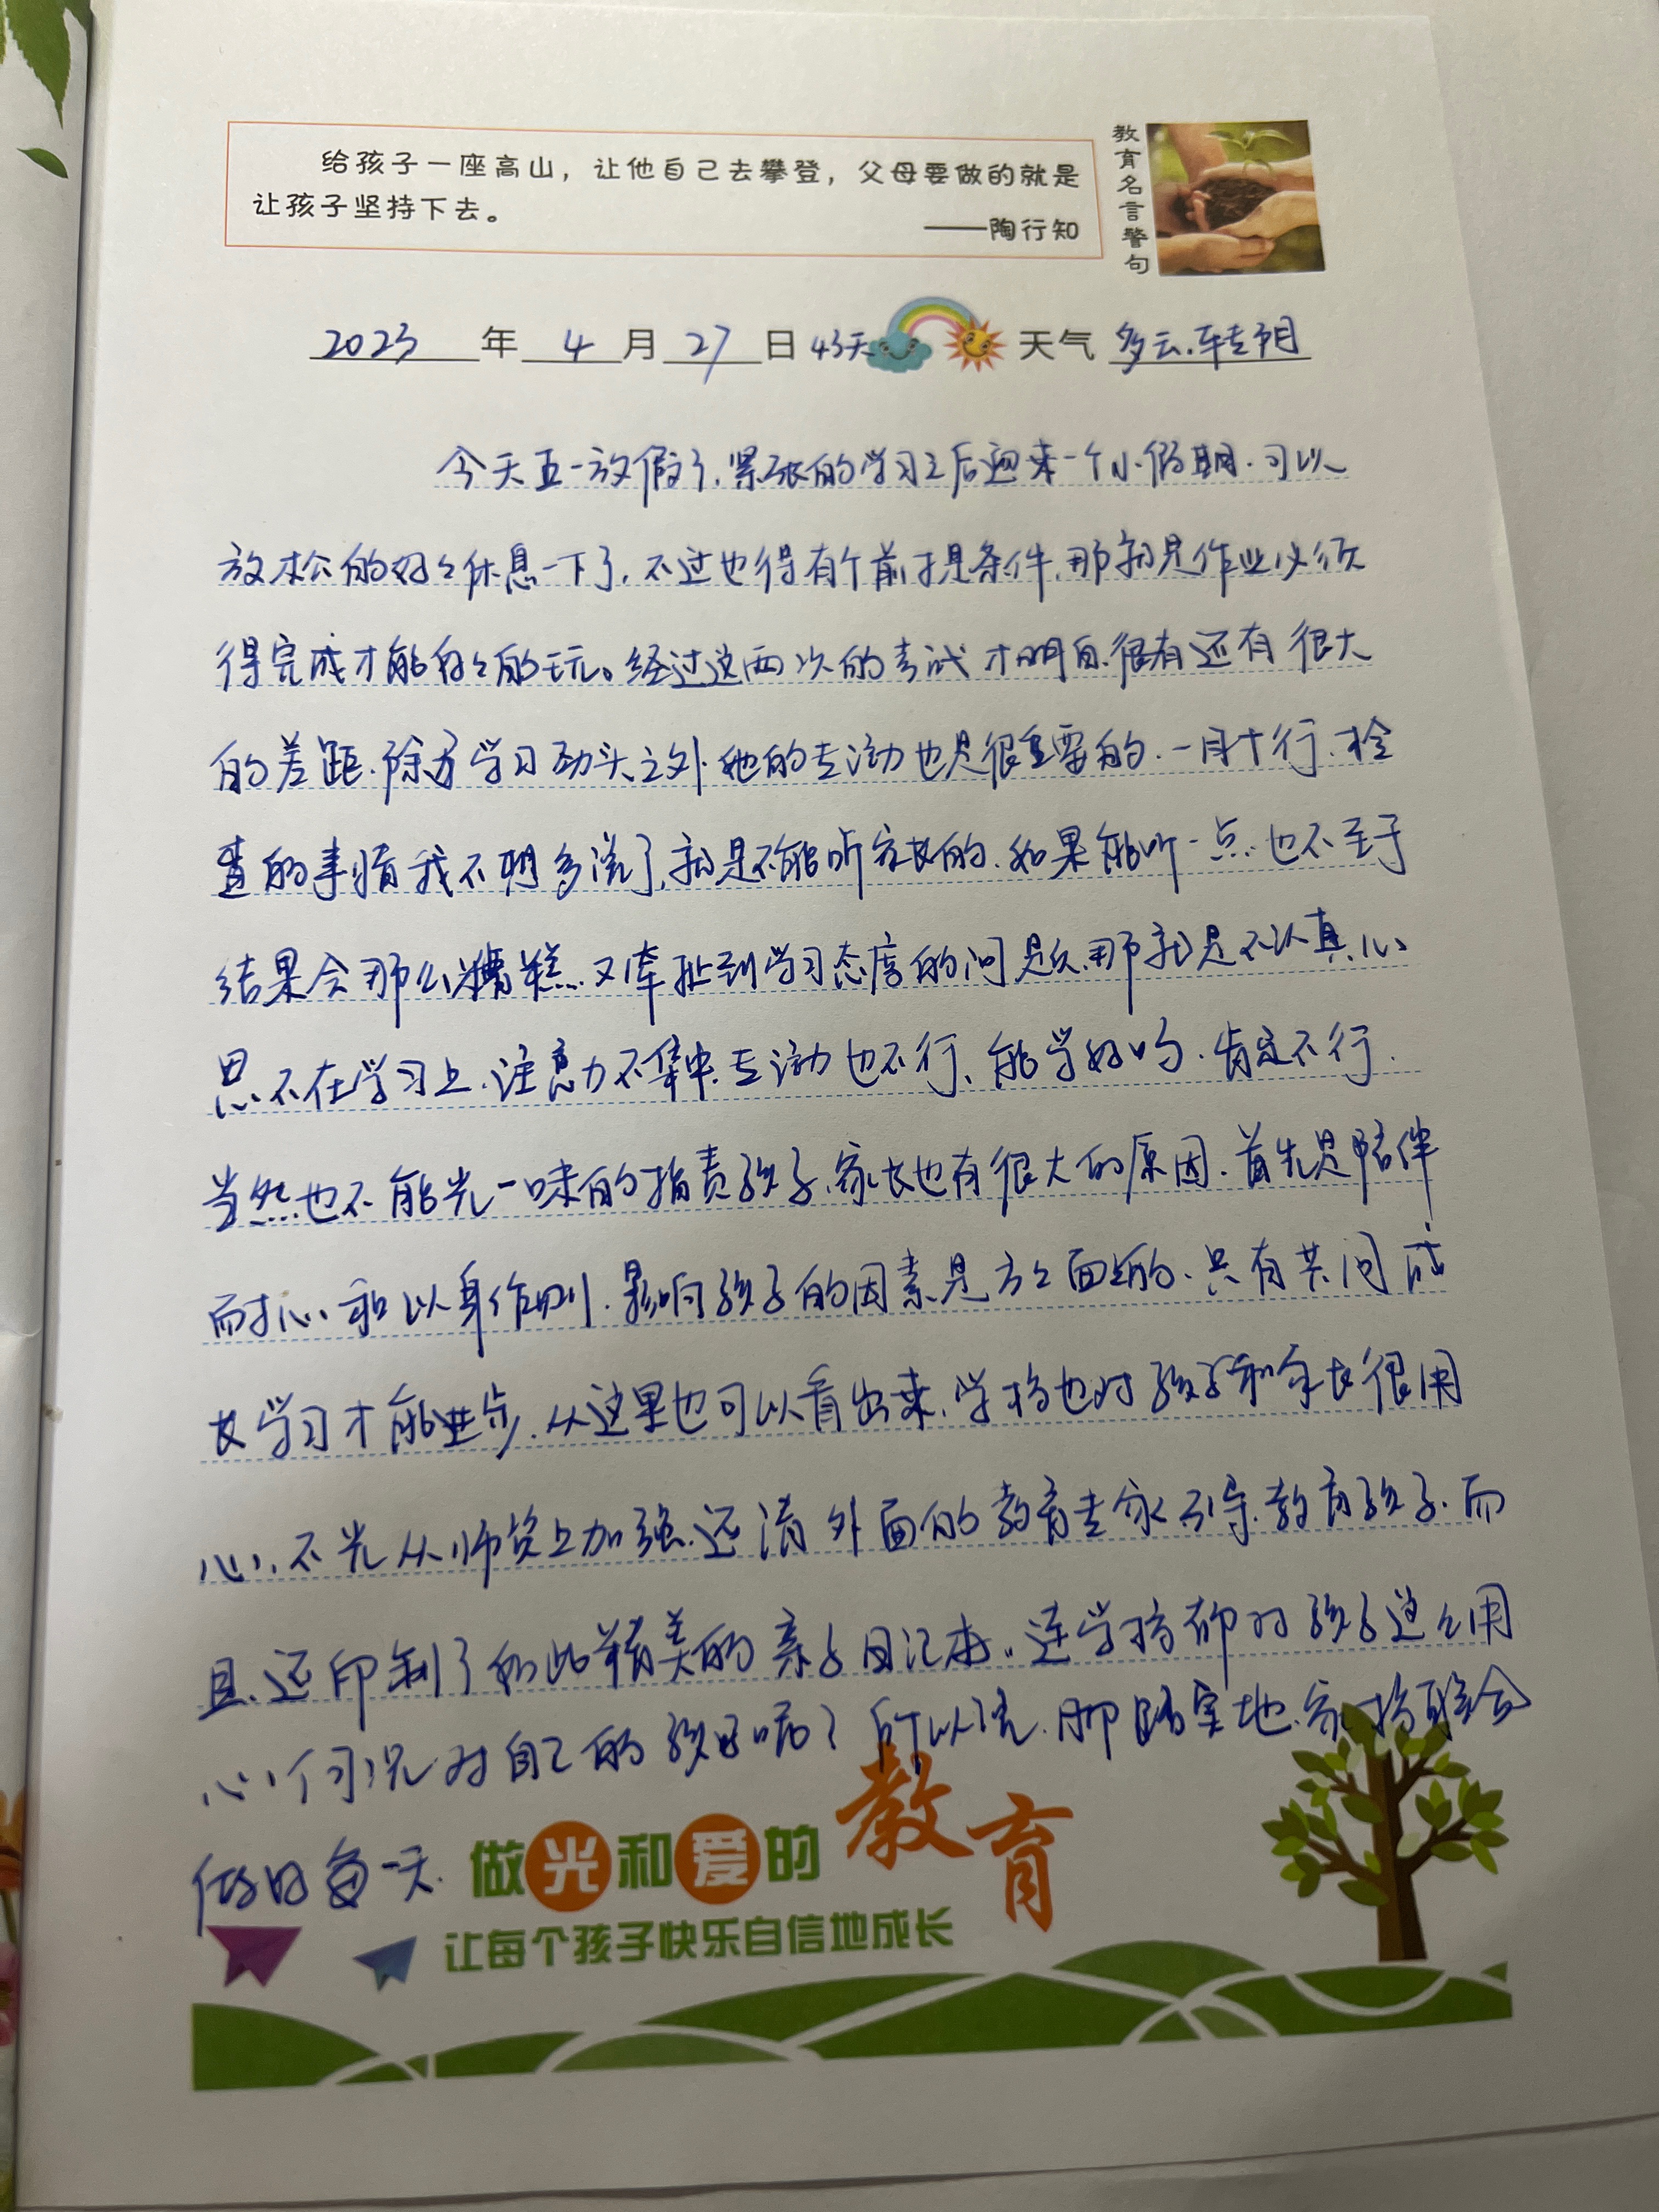 给孩子一座高山，让他自己去攀登，父母要做的就是
让孩子坚持下去。
——陶行知
教育名言警句
2023年4月27日 43天 天气 多云.转阴
今天五一放假了,紧张的学习之后迎来一个小假期.可以
放松的好々休息一下了.不过也得有个前提条件,那就是作业必须
得完成才能好々的玩。经过这两次的考试才明白.很有还有很大
的差距.除了学习劲头之外.她的主动也是很重要的.一目十行.检
查的事情我不想多说了,就是不能听家长的.如果能听一点.也不至于
结果会那么糟糕.又牵扯到学习态度的问题,那就是不认真.心
思不在学习上.注意力不集中.主动也不行、能学好吗.肯定不行.
当然也不能光一味的指责孩子,家长也有很大的原因.首先是陪伴
耐心和以身作则.影响孩子的因素是方々面面的.只有共同成
长学习才能进步.从这里也可以看出来,学校也对孩子和家长很用
心.不光从师资上加强.还请外面的教育专家引导.教育孩子.而
且.还印制了如此精美的亲子日记本。连学校都对孩子这么用
心.何况对自己的孩子呢？所以说.脚踏实地.家校联合
做好每一天.
做光和爱的教育
让每个孩子快乐自信地成长